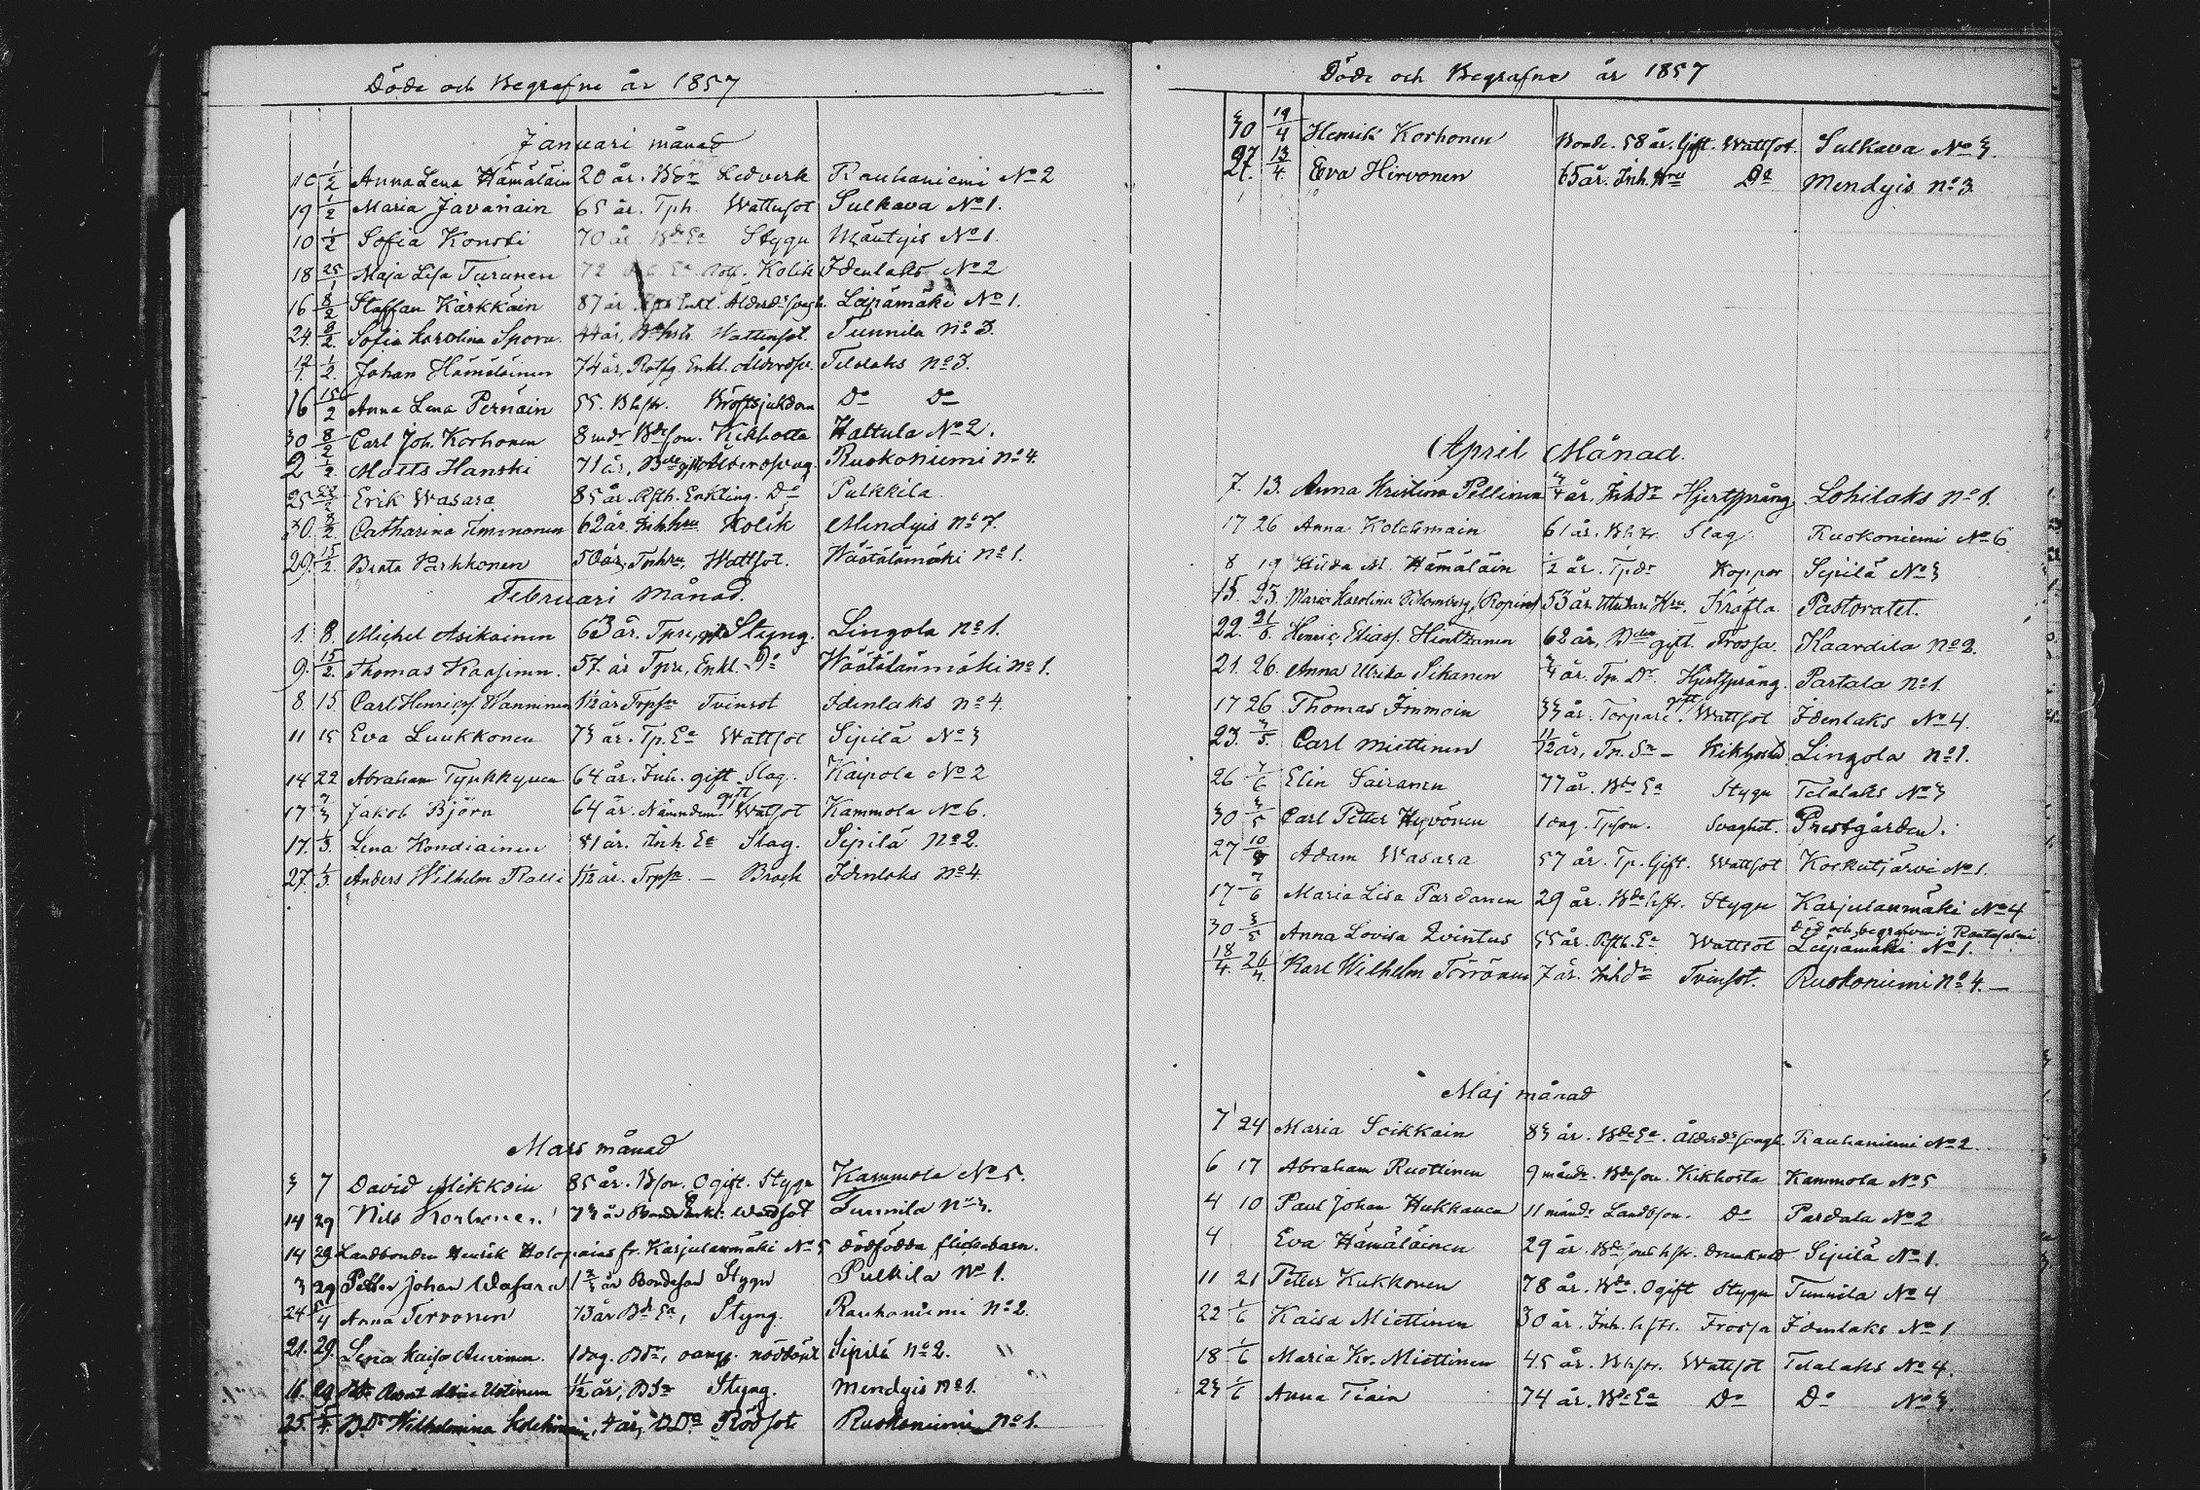 Döde och Begrafne år 1857
Januari månad
10 1/2 Anna Lena Hämäläin 20 år. Bdr Ledverk Rauhaniemi No 2
19 1/2 Maria Javanain 65 år. Tph. Wattusot Sulkava No 1.
10 1/2 Sofia Konsti 70 år. Bde Ea Stygn Mäntyis No 1.
18 25/1 Maja Lisa Turunen 72 Kolik Idenlaks No 2
16 8/2 Staffan Kärkkäin 87 år. Enkl. Ålderdsvagh. Leipämäki No 1.
24. 8/2. Sofia Karolina Spora. 44 år, Bhstr. Wattensot. Tunnila No 3.
12/1. 1/2. Johan Hämäläinen 74 år, Rotfg. Enkl. Ålderdsv. Telalaks No 3.
16 15/2 Anna Lena Pernäin 55. Bhstr. Bröstsjukdom Do Do
30 8/2 Carl Joh. Korhonen 8 mdr Bdeson. Kikhosta Hattula No 2.
2 1/2. Matts Hanski 71 år, Bde gift Ålderdsvag. Ruokoniemi No 4.
25 22/2 Erik Wasara 85 år. Rfth. Enkling. Do Pulkkila
30. 8/2. Catharina Immonen 62 år. Inhhru Kolik Mendyis No 7.
29. 15/2. Beata Parkkonen 50 år, Inhru, Wattsot. Wäätälämäki No 1.
Februari Månad.
1. 8. Michel Asikainen 63 år. Tpre, gift Styng. Lingola No 1.
9. 15/2. Thomas Kaasinen. 57. år Tpre, Enkl. Do Wäätälänmäki No 1.
8. 15. Carl Henricss. Wanninen 1½ år Torpsn Tvinsot Idenlaks No 4.
11 15 Eva Luukkonen 73 år. Tp. Ea Wattsot Sipilä No 3
14 22 Abraham Tynkkynen 64 år. Inh. gift Slag. Kaipola No 2
17 7/3 Jakob Björn 64 år. Nämndem. gift Wattsot Kammola No 6.
17. 1/3. Lena Kondiainen 81 år. Inh. Ea Slag. Sipilä No 2.
27. 1/3. Anders Wilhelm Ralli 1/12 år. Torpsn. — Brock Idenlaks No 4
Mars månad
3 7 David Mikkoin 85 år. Bson. Ogift. Stygn Kammola No 5.
14 29 Nils Korhonen. 73 år Bonde Enkl. Wattsot Tunnila No 3.
14 29. Landbonden Henrik Holopains fr. Karjulanmäki No 5 dödfödda flickebarn.
3 29 Petter Johan Wasara 1 2/3 år Bondeson Stygn Pulkila No 1.
24 5/4 Anna Tervonen 73 år Bde Ea, Styng. Rauhaniemi No 2.
21. 29. Lena Kaisa Auvinen. 1 dag. Bdr, oangf. nöddöpt Sipilä No 2.
16. 29. Ustinen 11/12 år, BSn Styng. Mendyis No 1.
25. 5/4. BDr Wilhelmina Kolehmain, 4 år, BDr Rödsot Ruokoniemi No 1.
Döde och Begrafne år 1857
30 19/4 Henrik Korhonen Bonde. 58 år. Gift. Wattsot. Sulkava No 3.
27. 13/4. Eva Hirvonen 65 år. Inh. Hru Do Mendyis No 3
April Månad.
7. 13. Anna Kristina Pellinen 3/4 år, Inhdr Hjertsprång Lohilaks No 1.
17 26 Anna Kolehmain 61 år. Bhstr. Slag. Ruokoniemi No 6
8 19 Hilda M. Hämäläin ½ år. Tpdr Koppor Sipilä No 3
15. 25. Maria Karolina Schomberg, (Ropin) 53 år Kräfta Pastoratet.
22. 21/6. Henric Eliass. Hintzanen 62 år, Bden gift. Frossa. Kaardila No 2.
21. 26. Anna Ulrika Sihanen 3/4 år. Tp. Dr. Hjertsprång. Partala No 1.
17 26 Thomas Immoin 33 år. Torpare gift. Wattsot Idenlaks No 4.
23. 3/5. Carl Miettinen 11/12 år, Tp. Sn — Kikhosta Lingola No 1.
26 7/6 Elin Sairanen 77 år. Bde Ea Stygn Telalaks No 3
30 3/5 Carl Petter Hyvönen 1 dag. Tpson. Svaghet. Prestgården.
27 10/5 Adam Wasara 57 år. Tp. Gift. Wattsot Korkutjärvi No 1.
17 7/6 Maria Lisa Pardanen 29 år. Bdehstr. Stygn Karjulanmäki No 4
död och begrafven i Rantasalmi
30 3/5 Anna Lovisa Qvintus 55 år. Rfth. Ea Wattsot Leipämäki No 1.
18/4. 26/4. Karl Wilhelm Törrönen 7 år. Inhsn Tvinsot. Ruokoniemi No 4. —
Maj månad
7 24 Maria Soikkain 83 år. Bde Ea. Ålderdsvagh. Rauhaniemi No 2
6 17 Abraham Ruottinen 9 månd. Bdeson. Kikhosta Kammola No 5
4 10 Paul Johan Hukkanen 11 månd. Landbson. Do Pardala No 2
4 Eva Hämäläinen 29 år. Bdesonshstr. drunknad Sipilä No 1.
11 21 Petter Kukkonen 78 år. Bde. Ogift Stygn Tunnila No 4
22 1/6 Kaisa Miettinen 30 år. Inh. hstr. Frossa Idenlaks No 1
18 1/6 Maria Kr. Miettinen 45 år. Bhstr. Wattsot Telalaks No 4.
23 1/6 Anna Tiain 74 år. Bde Ea Do Do No 3